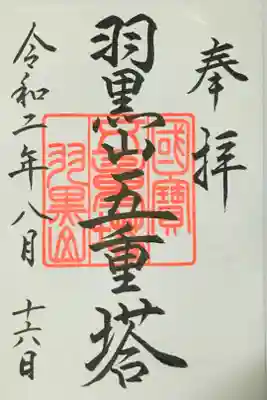 奉拝
國寶
羽黒山五重塔
羽黒山
令和二年八月十六日